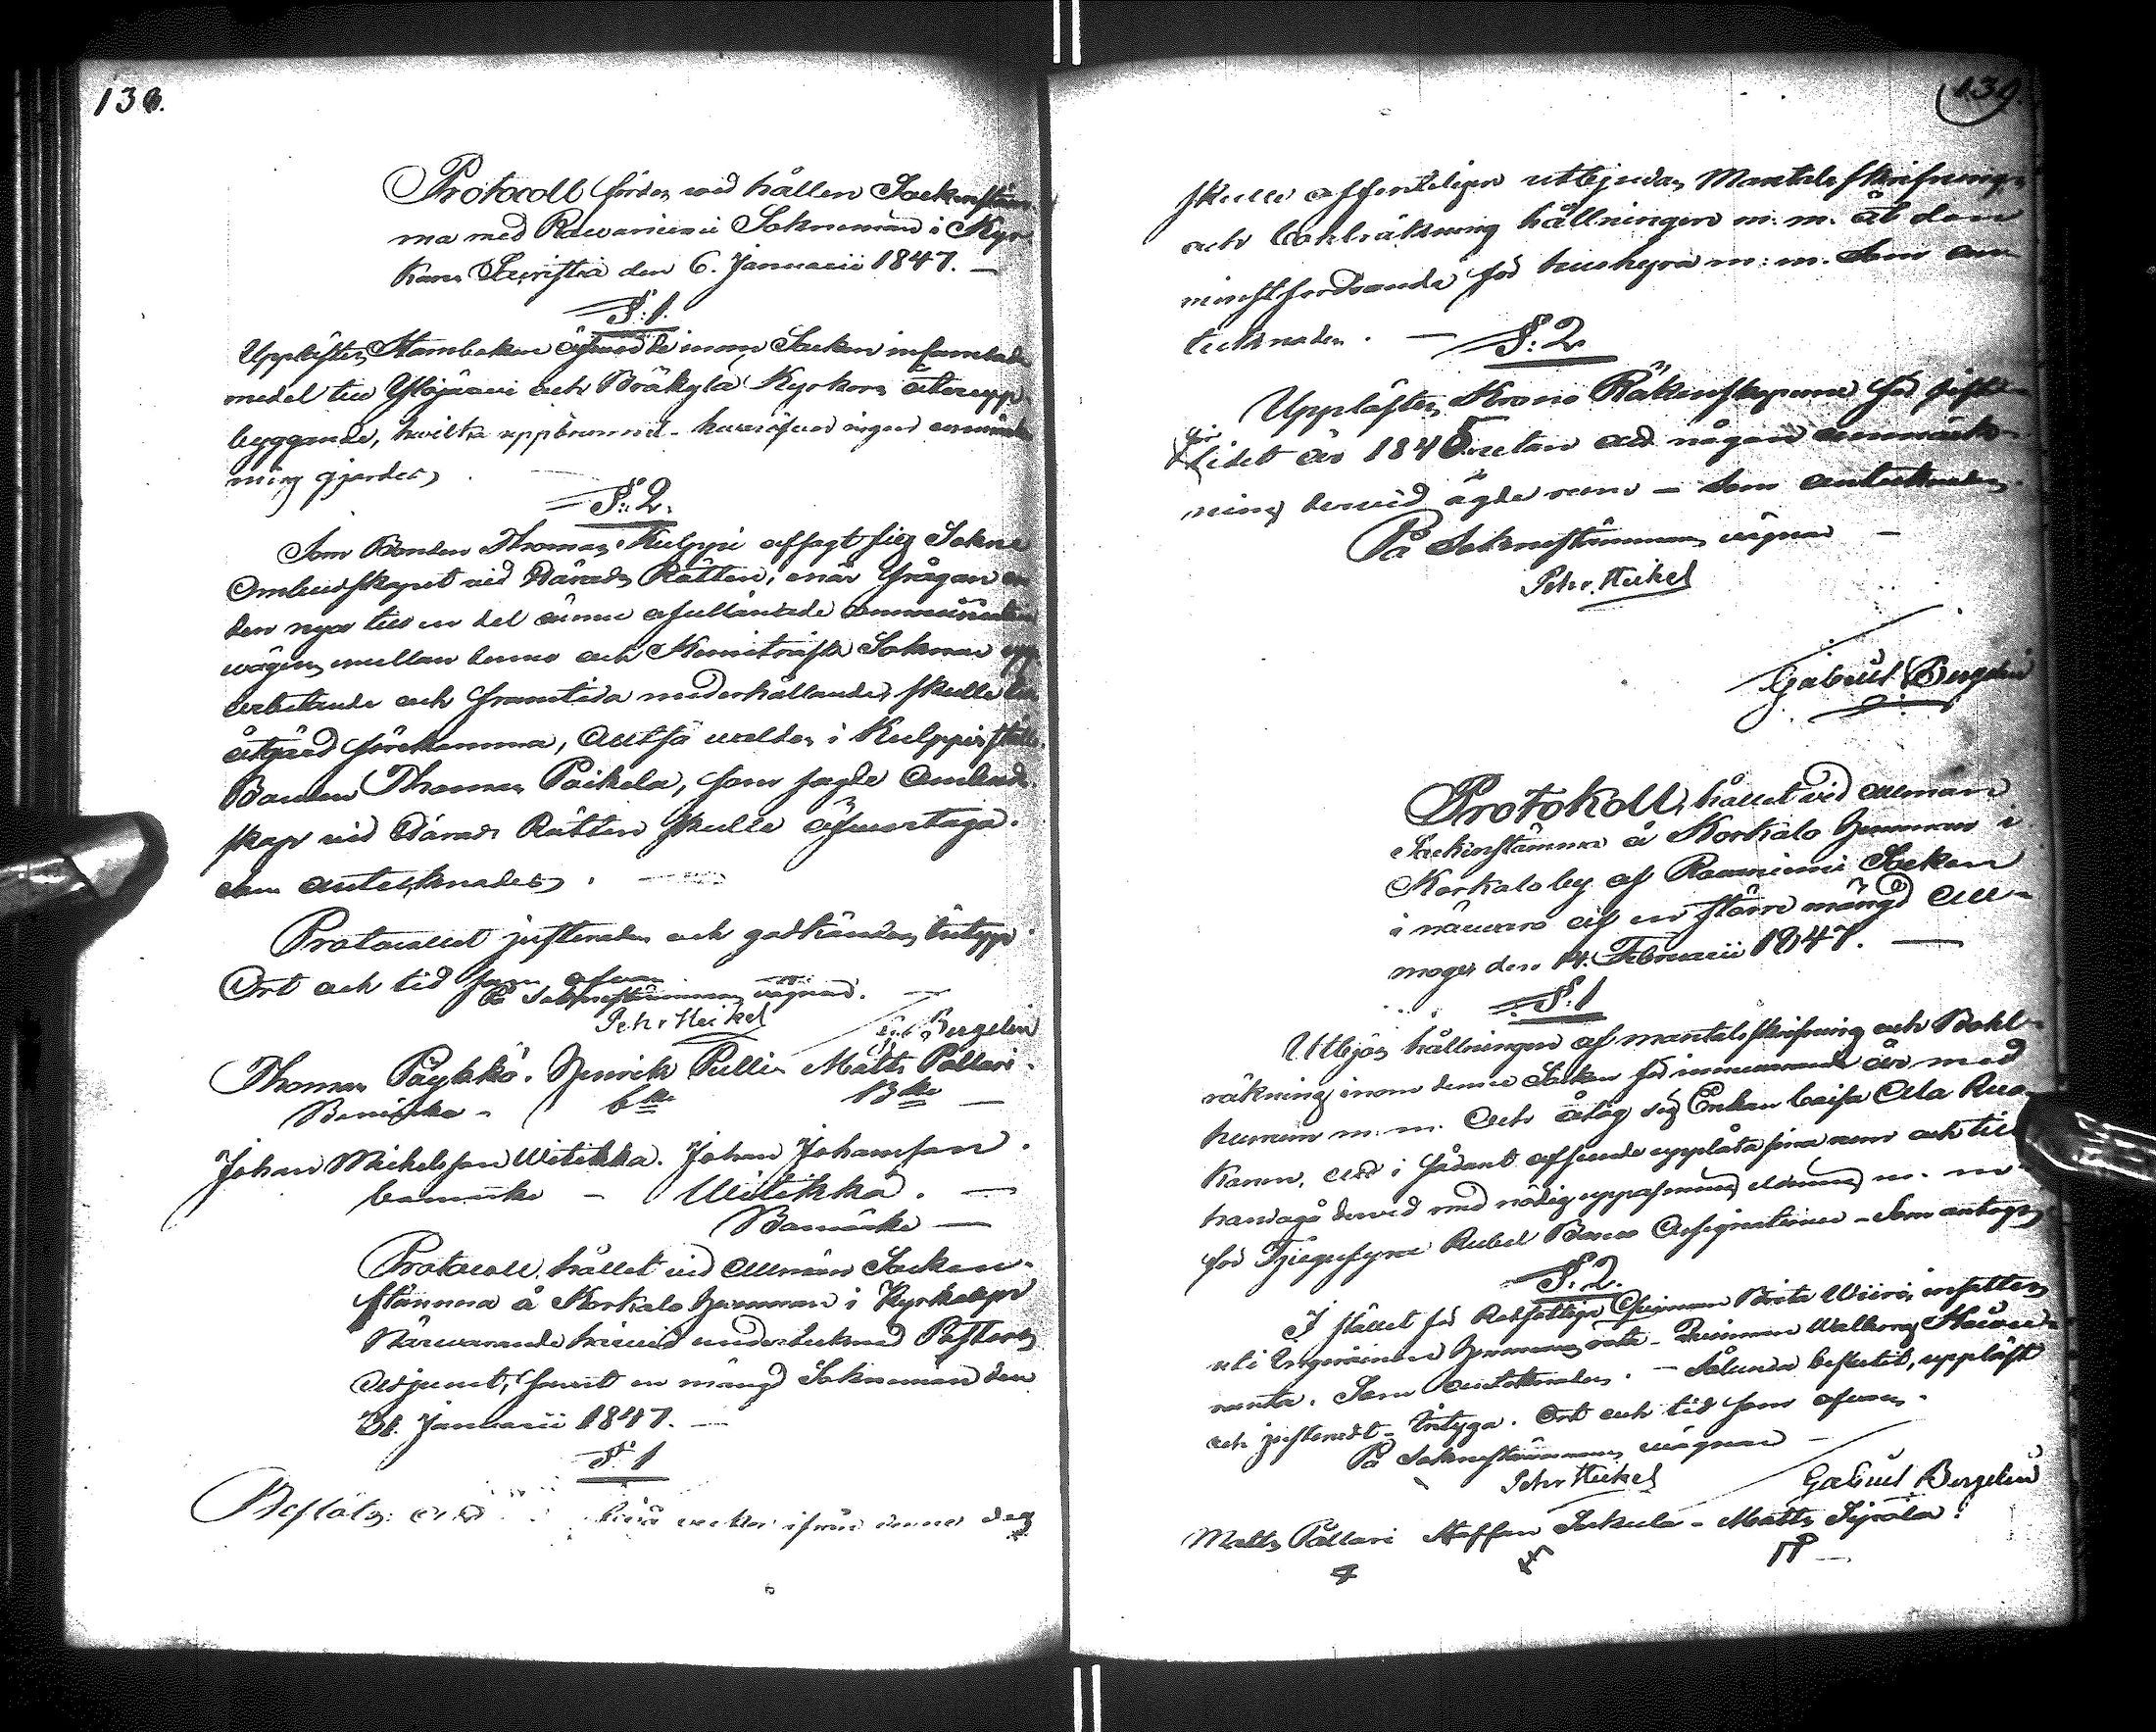 138.
Protocoll fördt wid hållen Sockenstäm
ma med Rovaniemi Soknemän i Kyr
kans Sacristia den 6. Januarii 1847. —
§: 1.
Upplästes Stamboken öfver de inom Socken insamlade
medel till Ylöjärvi och Bräkylä Kyrkors återupp
byggande, hvilka uppbrunnit - hvaröfver ingen anmärk
ning gjordes
§: 2.
Som Bonden Thomas Kulppi afsagt sig Sokne
Ombudskapet vid Härads Rätten, enär frågan om
den nya till en del ännu afslutade communication
vägens mellan denna och Kemiträsk Soknar upp
arbetande och framtida underhållande, skulle till
åtgärd förekomma, Alltså valdes i Kulppis ställe
Bonden Thomas Paikela, som sagde Ombud
skap vid Härads Rätten skulle öfvertaga.
som antecknades. —
Protocollet justerades och godkändes, betygar
Ort och tid som ofvan
På Soknestämmans vägnar. —
Pehr Heikel Bergelin
Thomas Päykkö. Henrik Pulli Matts Pallari.
Bomärke - bke Bke —
Johan Mickelsson Witikka. Johan Johansson.
bomärke — Witikka. —
Bomärke —
Protocoll, hållet vid Allmän Socken-
stämma å Korkalo Hemman i Kyrkobyn
Närvarande härvid undertecknad Pastors
Adjunct, samt en mängd Soknemän den
31. Januarii 1847. —
§: 1
Beslöts: att veckor ifrån denna dag
139.
skulle offentligen utbjudas Mantalsskrifnings
och boklräkning hållningen m. m. åt den
minstfordrande för hushyra m: m. Som an
tecknades. — §: 2
Upplästes Krono Räkenskaperna för sist-
lidet år 1845 utan att någon anmärk-
ning dervid ägde rum — Som antecknades.
På Soknestämmans vägnar —
Pehr Heikel
Gabriel Bergelin
Protokoll, hållet vid allmän
Sockenstämma å Korkalo Hemman i
Korkalo by af Rovaniemi Socken
i närvaro af en större mängd All-
moge, den 14. Februarii 1847. —
§: 1
Utbjöds hållningen af mantalsskrifning och Bokl-
räkning inom denna Socken för innevarande år med
husrum m. m. Och åtog sig Enkan Caisa Ala Ruo
kanen, att i sådant afseende upplåta sina rum och till
handagå dervid med nödig uppassning eldning m. m.
för Tjugufyra Rubel Banco Assignationer - Som antogs
§: 2.
I stället för Rotfattige Qvinnan Brita Wiiri, insattes
uti hemmans rote - Qvinnan Walborg
ranta. Som antecknades. — Sålunda beslutit, uppläst
och justeradt - betygar. Ort och tid som ofvan.
På Soknestämmans vägnar —
Pehr Heikel Gabriel Bergelin
Matts Pallari Staffan Jokela - Matts Sijrälä: